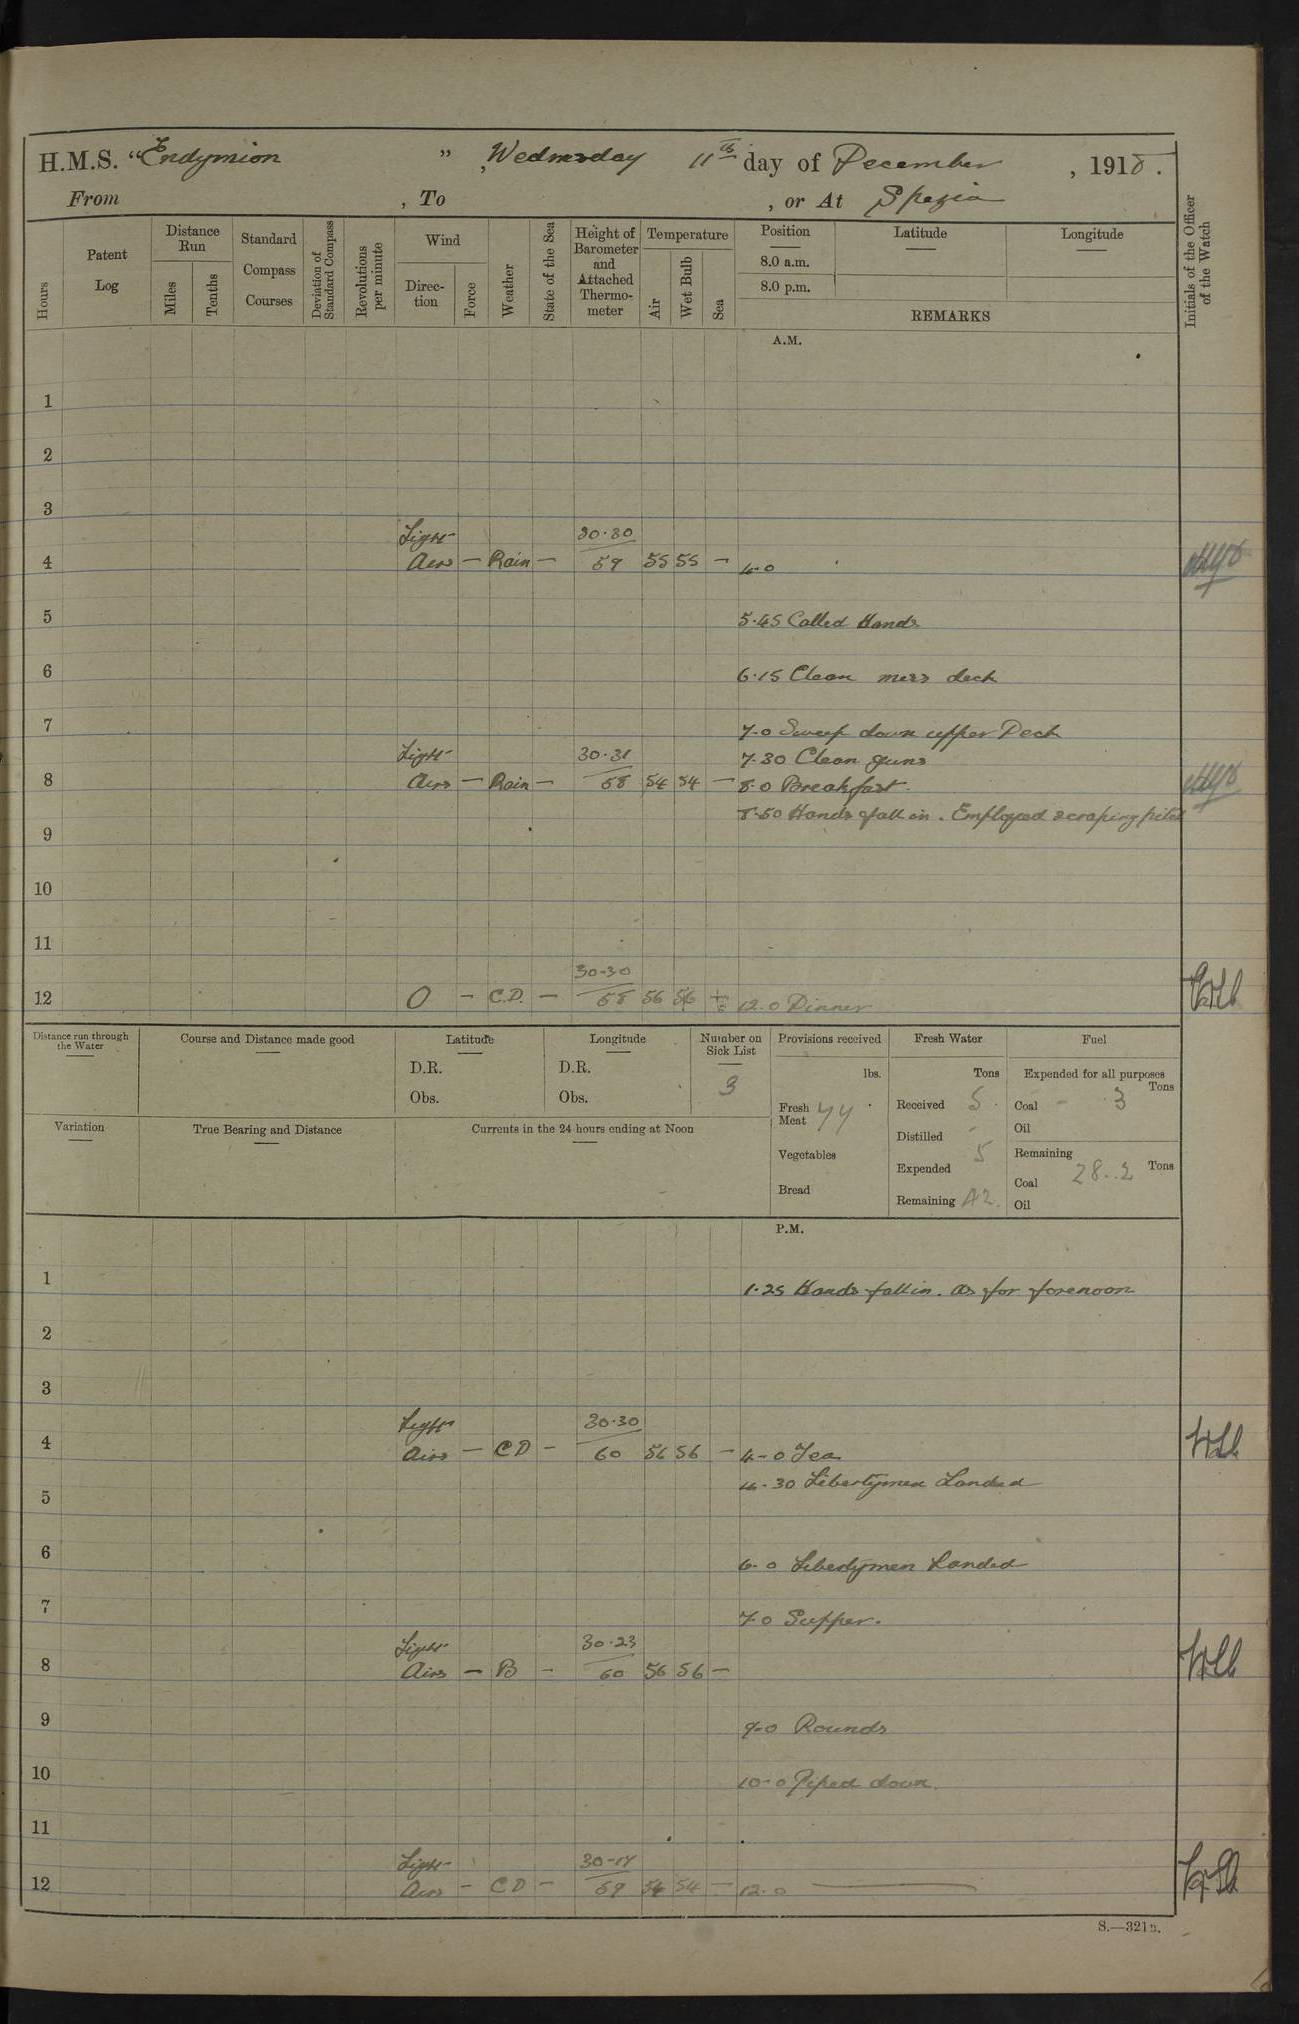 H.M.S. "Endymion", Wednesday 11th day of December, 1918.
From , To , or At Spezia
Hours
Patent Log
Distance Run
Miles
Tenths
Standard Compass Courses
Deviation of Standard Compass
Revolutions per minute
Wind
Direction
Force
Weather
State of the Sea
Height of Barometer and Attached Thermometer
Temperature
Air
Wet Bulb
Sea
Position
8.0 a.m.
8.0 p.m.
Latitude
Longitude
REMARKS
Initials of the Officer of the Watch
A.M.
1
2
3
Light 30·30
4 Airs — Rain — 59 55 55 — 4-0
5 5·45 Called Hands
6 6·15 Clean mess deck
7 7-0 Sweep down upper Deck
Light 30·31 7·30 Clean guns
8 Airs — Rain — 58 54 54 — 8·0 Breakfast.
8·50 Hands fall in. Employed scraping
9
10
11
30-30
12 0 — C.D. — 58 56 56 12·0 Dinner
Distance run through the Water
Course and Distance made good
Latitude
D.R.
Obs.
Longitude
D.R.
Obs.
Number on Sick List
3
Provisions received
lbs.
Fresh Meat 44
Vegetables
Bread
Fresh Water
Tons
Received 5
Distilled -
Expended 5
Remaining 42
Fuel
Expended for all purposes
Tons
Coal - 3
Oil
Remaining
Tons
Coal 28..2
Oil
Variation
True Bearing and Distance
Currents in the 24 hours ending at Noon
P.M.
1 1·25 Hands fall in. As for forenoon
2
3
Light 30·30
4 Airs — CD — 60 56 56 — 4-0 Tea
4·30 Libertymen Landed
5
6 6·0 Libertymen Landed
7 7·0 Supper.
Light 30·23
8 Airs — B — 60 56 56 —
9 9-0 Rounds
10 10-0 Piped down.
11
Light
12 Airs — CD — 59 54 54 — 12·0 —
S.—321B.